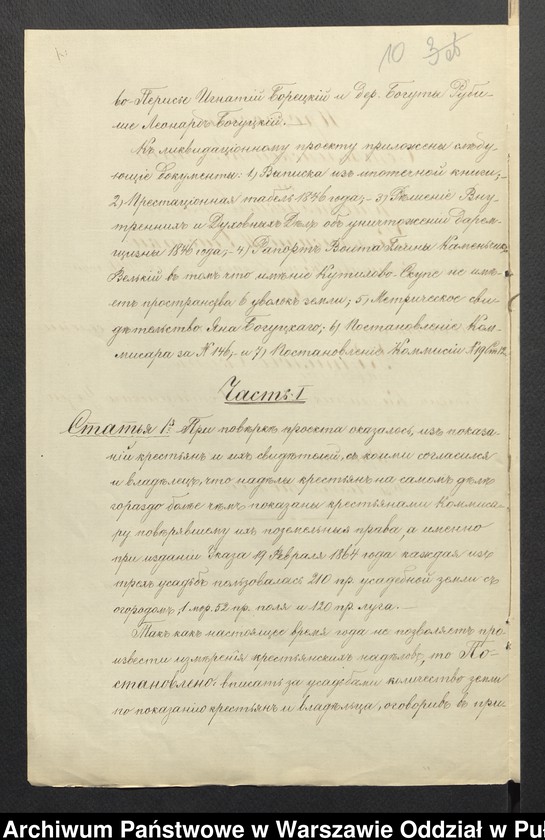 10
во Перисье Игнатій Борецкій и дер. Богуты Руби-
ше Леонардъ Богуцкій.
Къ ликвидаціонному проекту приложены слѣду-
ющіе документы: 1) Выписка изъ ипотечной книги; -
2) Престаціонная табель 1846 года; - 3) Рѣшеніе Вну-
треннихъ и Духовныхъ Дѣлъ объ уничтоженіи дарем-
щизны 1846 года; - 4) Рапортъ Войта Гмины Каменьчикъ
Велькій въ томъ что имѣніе Кутылово-Скупе не имѣ-
етъ пространства 6 уволокъ земли; 5) Метрическое сви-
дѣтельство Яна Богуцкаго; 6) Постановленіе Ком-
мисара за N 146, - и 7) Постановленіе Коммисіи N 19
Часть I
Статья 1я При повѣркѣ проекта оказалось, изъ показа-
ній крестьянъ и ихъ свидѣтелей, съ коими согласился
и владѣлецъ, что надѣлы крестьянъ на самомъ дѣлѣ
гораздо болѣе чѣмъ показаны крестьянами Коммиса-
ру повѣрявшему ихъ поземельныя права, а именно
при изданіи Указа 19 Февраля 1864 года каждая изъ
трехъ усадьбъ пользовалась 210 пр. усадебной земли съ
огородомъ, 1 мор. 52 пр. поля и 120 пр. луга. -
Такъ какъ настоящее время года не позволяетъ про-
извести измѣренія крестьянскихъ надѣловъ, то По-
становлено: вписать за усадьбами количество земли
по показанію крестьянъ и владѣльца, оговоривъ въ при
Archiwum Państwowe w Warszawie Oddział w Pu